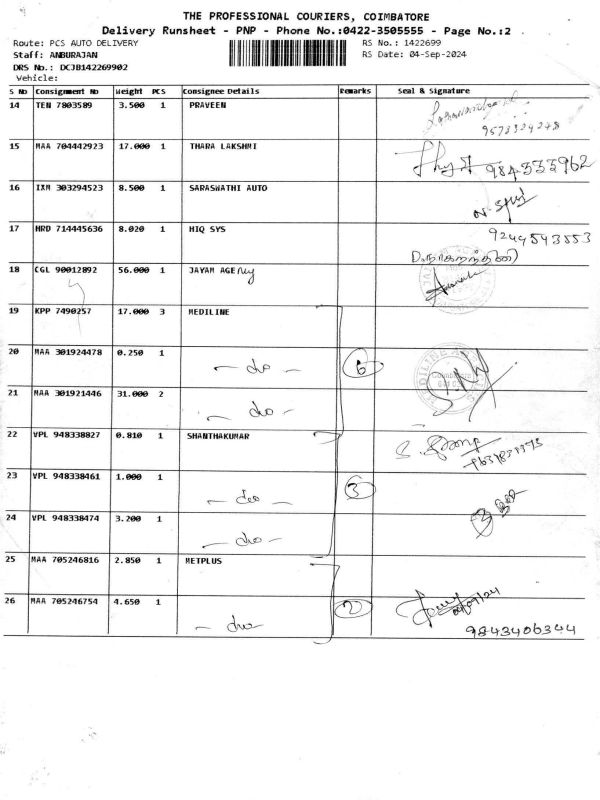 THE PROFESSIONAL COURIERS, COIMBATORE
Delivery Runsheet - PNP - Phone No.:0422-3505555 - Page No.:2
Route: PCS AUTO DELIVERY
RS No.: 1422699
Staff: ANBURAJAN
RS Date: 04-Sep-2024
DRS No.: DCJB142269902
Vehicle:
S No Consignment No Weight PCS Consignee Details Remarks Seal & Signature
14 TEN 7803589 3.500 1 PRAVEEN
9573324248
15 MAA 704442923 17.000 1 THARA LAKSHMI
984333962
16 IXM 303294523 8.500 1 SARASWATHI AUTO
17 HRD 714445636 8.020 1 HIQ SYS
9244543553
18 CGL 90012892 56.000 1 JAYAM AGENy
19 KPP 7490257 17.000 3 MEDILINE
20 MAA 301924478 0.250 1 - do - 6
21 MAA 301921446 31.000 2 - do -
22 VPL 948338827 0.810 1 SHANTHAKUMAR
23 VPL 948338461 1.000 1 - do - 3
24 VPL 948338474 3.200 1 - do -
25 MAA 705246816 2.850 1 METPLUS
26 MAA 705246754 4.650 1 - do - 2
04/09/24
9843406344